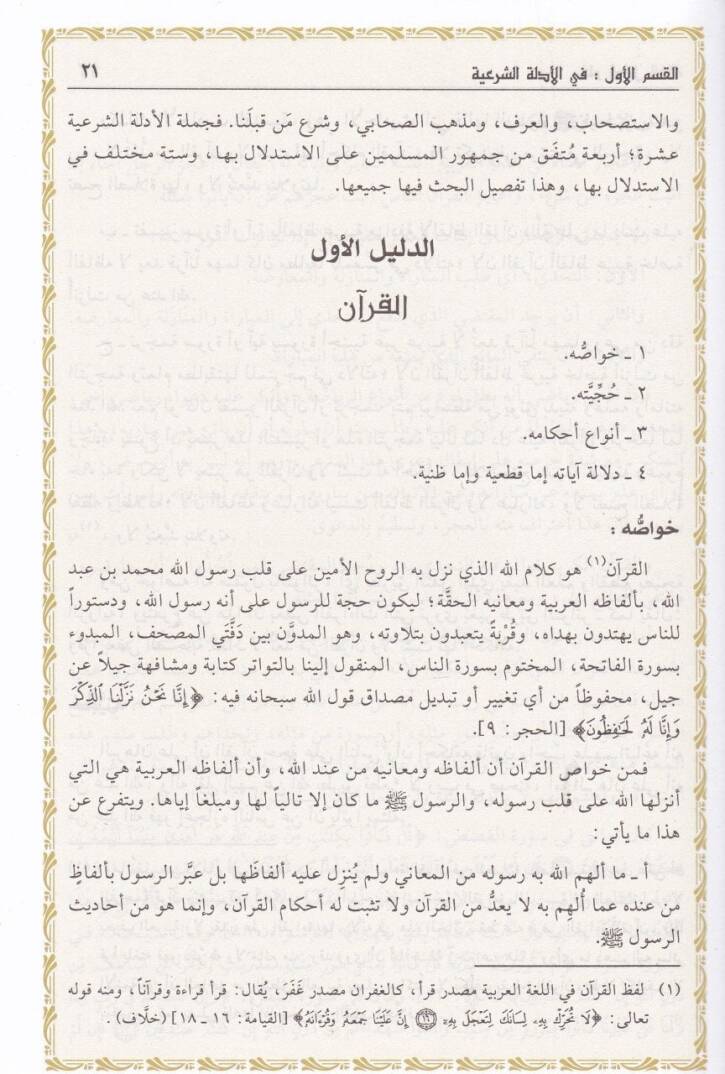 القسم الأول : في الأدلة الشرعية ٢١
والاستصحاب، والعرف، ومذهب الصحابي، وشرع مَن قبلَنا. فجملة الأدلة الشرعية
عشرة؛ أربعة مُتفَق من جمهور المسلمين على الاستدلال بها، وستة مختلف في
الاستدلال بها، وهذا تفصيل البحث فيها جميعها.
الدليل الأول
القرآن
١ ـ خواصُّه.
٢ ـ حُجِّيَّته.
٣ ـ أنواع أحكامه.
٤ ـ دلالة آياته إما قطعية وإما ظنية.
خواصُّه :
القرآن(١) هو كلام الله الذي نزل به الروح الأمين على قلب رسول الله محمد بن عبد
الله، بألفاظه العربية ومعانيه الحقَّة؛ ليكون حجة للرسول على أنه رسول الله، ودستوراً
للناس يهتدون بهداه، وقُرْبةً يتعبدون بتلاوته، وهو المدوَّن بين دَفَّتَي المصحف، المبدوء
بسورة الفاتحة، المختوم بسورة الناس، المنقول إلينا بالتواتر كتابة ومشافهة جيلاً عن
جيل، محفوظاً من أي تغيير أو تبديل مصداق قول الله سبحانه فيه: ﴿إِنَّا نَحْنُ نَزَّلْنَا ٱلذِّكْرَ
وَإِنَّا لَهُۥ لَحَـٰفِظُونَ﴾ [الحجر: ٩].
فمن خواص القرآن أن ألفاظه ومعانيه من عند الله، وأن ألفاظه العربية هي التي
أنزلها الله على قلب رسوله، والرسول ﷺ ما كان إلا تالياً لها ومبلغاً إياها. ويتفرع عن
هذا ما يأتي:
أ ـ ما ألهم الله به رسوله من المعاني ولم يُنزل عليه ألفاظَها بل عبَّر الرسول بألفاظٍ
من عنده عما أُلهِم به لا يعدُّ من القرآن ولا تثبت له أحكام القرآن، وإنما هو من أحاديث
الرسول ﷺ.
(١) لفظ القرآن في اللغة العربية مصدر قرأ، كالغفران مصدر غَفَرَ، يُقال: قرأ قراءة وقرآناً، ومنه قوله
تعالى: ﴿لَا تُحَرِّكْ بِهِۦ لِسَانَكَ لِتَعْجَلَ بِهِۦٓ ﴿١٦﴾ إِنَّ عَلَيْنَا جَمْعَهُۥ وَقُرْءَانَهُۥ﴾ [القيامة: ١٦ ـ ١٨] (خلَّاف).